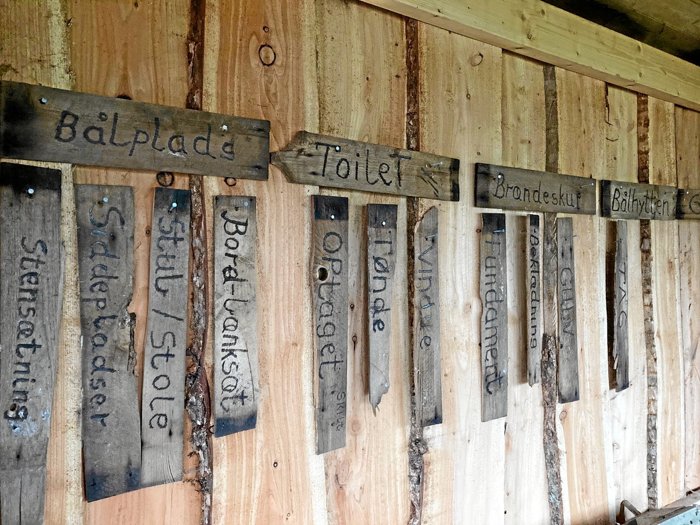 Bålplads
Stensætning
Siddepladser
Stub / Stole
Bord-bænksæt
Toilet
OPtaget
Tønde
Vindue
Brændeskur
Fundament
Beklædning
Gulv
Bålhytten
TAG